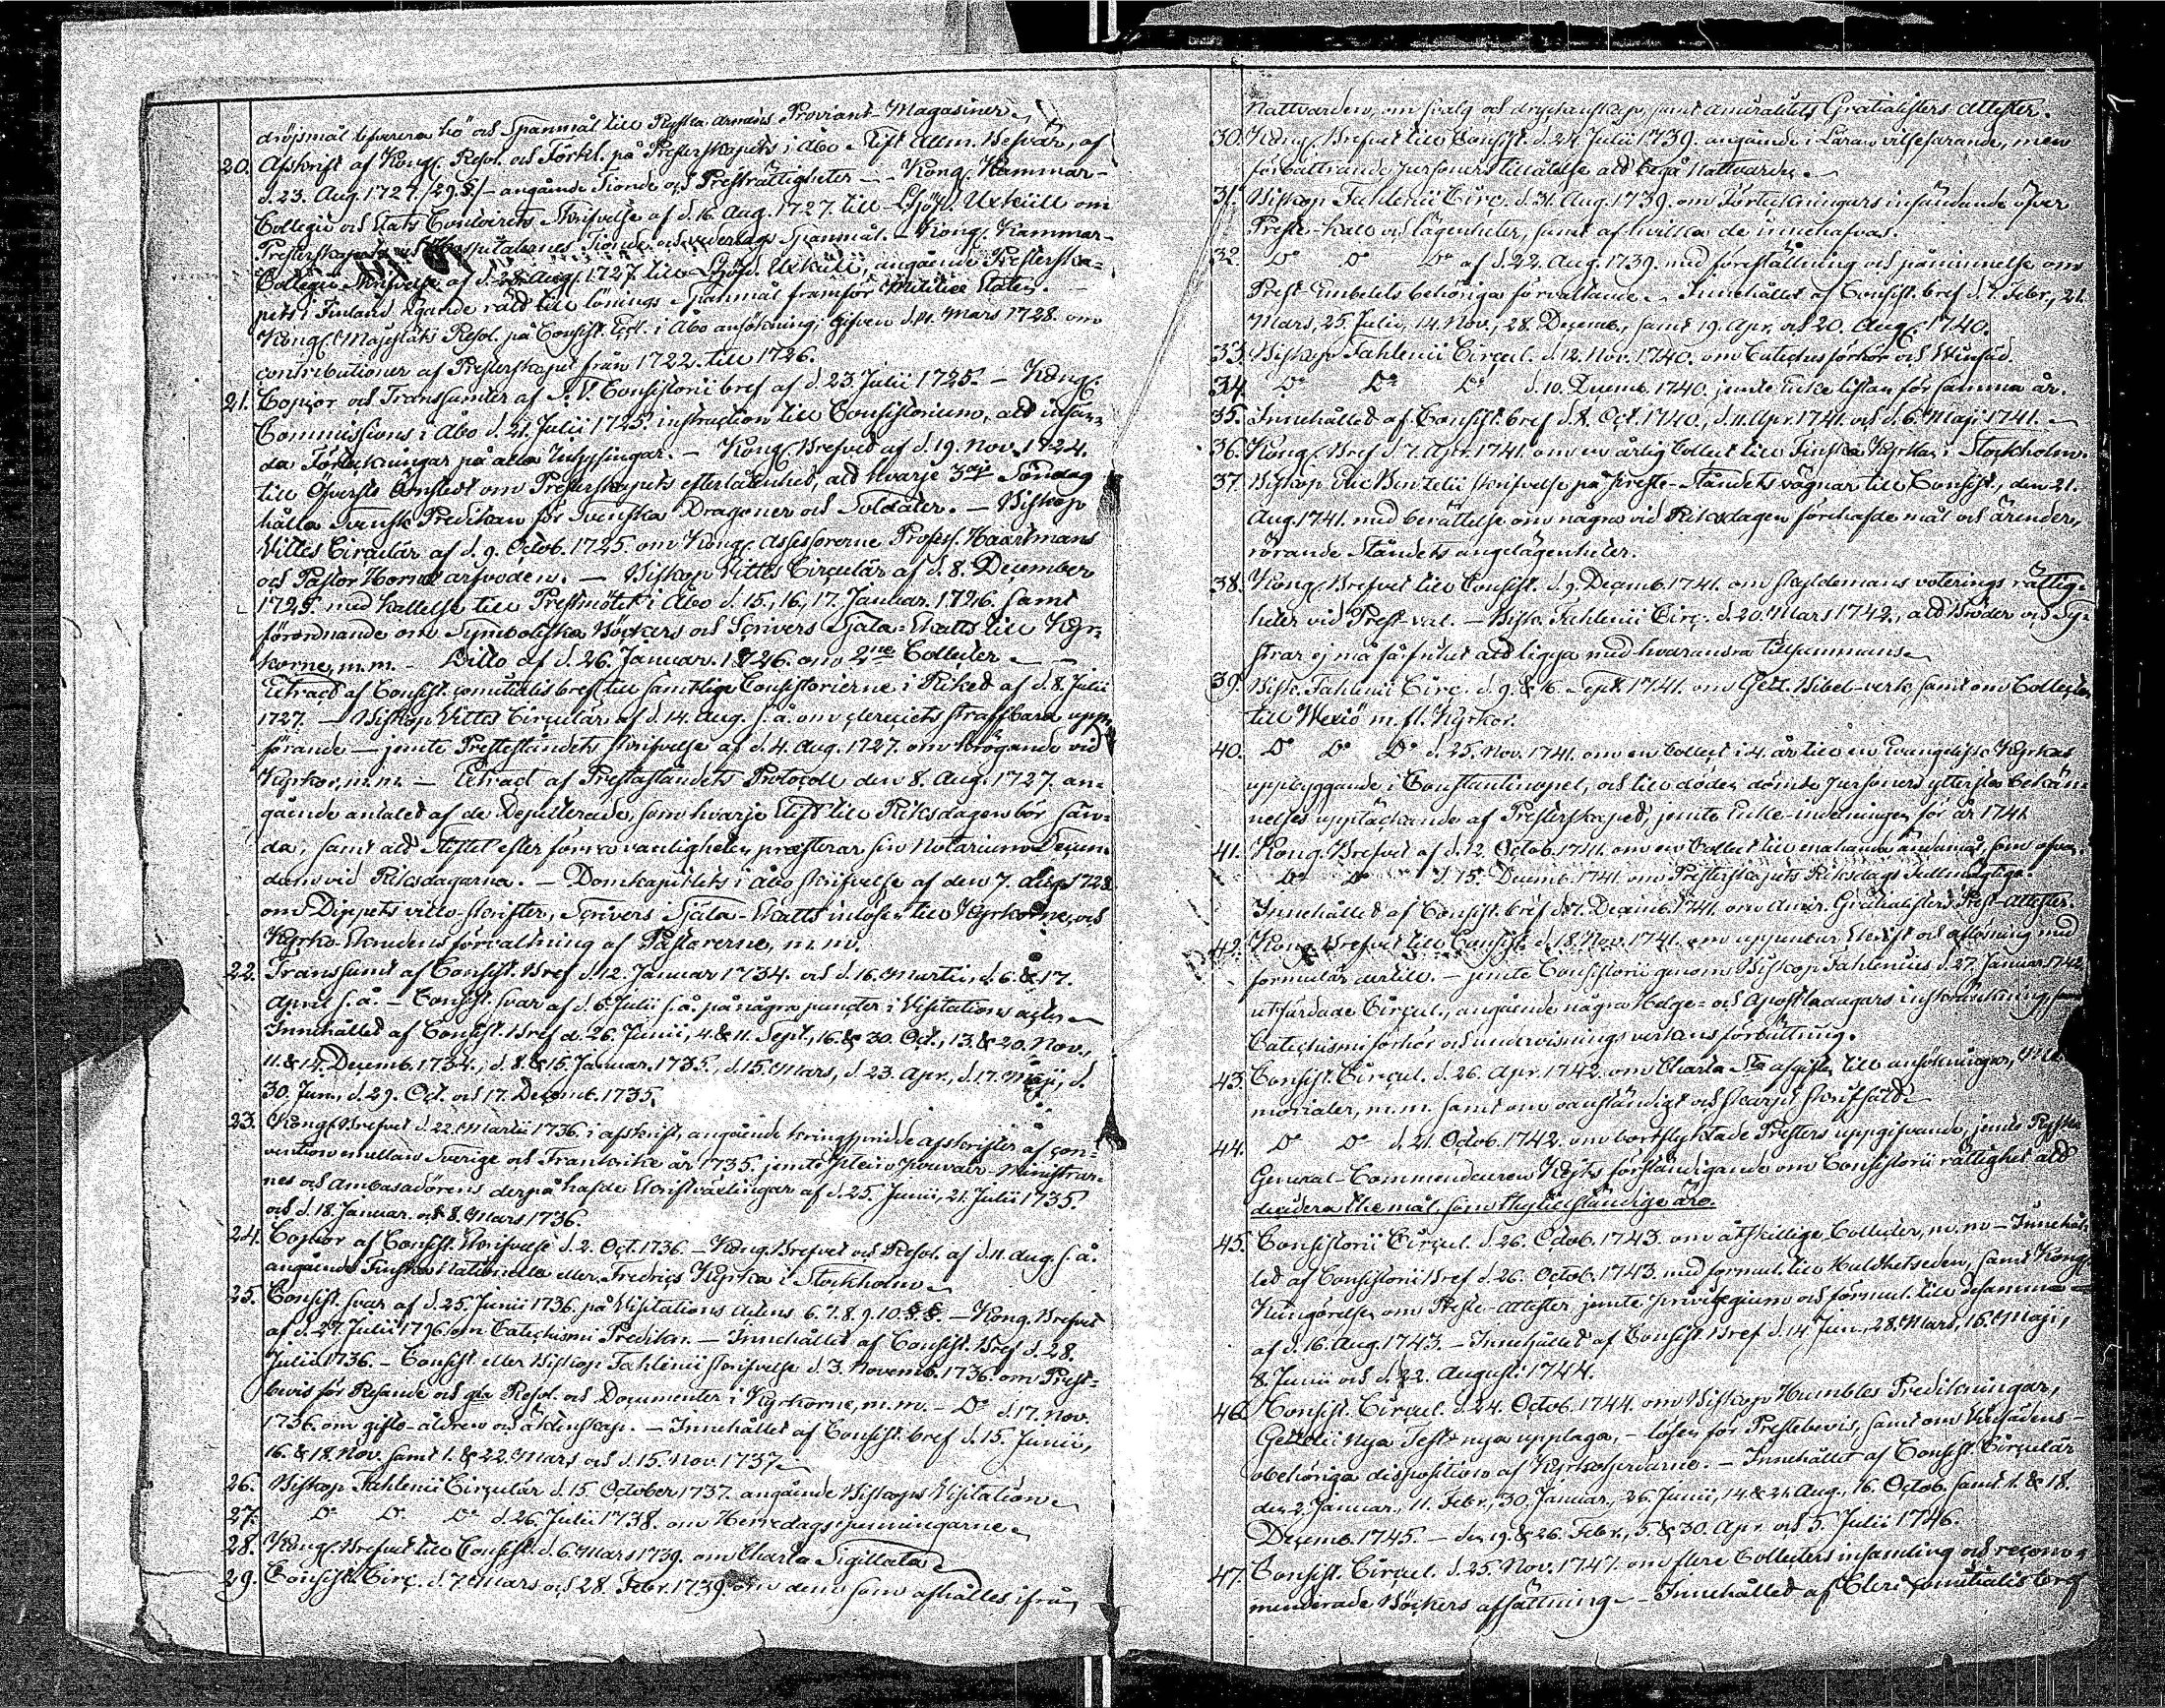 dröjsmål leverera hö och Spanmål till Ryska arméns Proviant-Magasiner.
20. Afskrift af Kongl. Resol. och Förkl. på Presterskapets i Åbo Stift Allm. Besvär, af
d. 23. Aug. 1727. /29.§/ – angående Tionde och Presträttigheter – – Kong. Kammar-
Collegii och Stats Contoirets Skrifvelse af d. 16. Aug. 1727. till Uxküll om
Presterskapets och Hospitalernes Tionde och vederlags Spanmål. – Kong. Kammar-
Collegii Skrifvelse af d. 28 Aug. 1727 till Uxküll, angående Presterska-
pets i Finland ägande rätt till lönings Spanmål framför Militiæ Staten. –
Kongl. Majestäts Resol. på Consist. Eccl. i Åbo ansökning, gifven d. 11. Mars 1728. om
contributioner af Presterskapet från 1722. till 1726.
21. Copior och Transsumter af S. V. Consistorii bref af d. 23. Julii 1725. – Kongl.
Commissions i Åbo d. 21. Julii 1725. instruction till Consistorium, att insän-
da Förteckningar på alla – Kongl. Brefvet af d. 19. Nov. 1724.
till Öfverste om Presterskapets efterlåtenhet, att hvarje 3dje Söndag
hålla Svensk Predikan för Svenska Dragoner och Soldater. – Biskop
Vittes Circulär af d. 9. Octob. 1725. om Kongl. Assessorerne Profess. Haartmans
och Pastor Hornæi arfvoden. – Biskop Vittes Circulär af d. 8. December
1725. med kallelse till Prestmötet i Åbo d. 15., 16., 17. Januar. 1726. samt
förordnande om Symboliska Böckers och Scrivers Själa-Skatts till Kyr-
korne, m.m. – Ditto af d. 26. Januar. 1726. om 2ne Collecter –
Extract af Consist. comitialis bref till samtlige Consistorierne i Riket af d. 8. Julii
1727. – Biskop Vittes Circulär af d. 14. Aug. s. å. om clereciets straffbara upp-
förande – jemte Preste-ståndets skrifvelse af d. 4. Aug. 1727. om krögande vid
Kyrkor, m.m. – Extract af Prestaståndets Protocoll den 8. Aug. 1727. an-
gående antalet af de Deputerade, som hvarje Stift till Riksdagen bör sän-
da; samt att Stiftet efter förra vanligheten præsterar sin Notarium
vid Riksdagarna. – Domkapitlets i Åbo skrifvelse af den 7. Aug. 1728
om Dippels villo-skrifter, Scrivers Själa-Skatts inlösen till Kyrkorne, och
Kyrko-Landens förvaltning af Pastorerne, m.m.
22. Transsumt af Consist. Bref d. 12. Januar 1734. och d. 16. Martii, d. 6. & 17.
April s. å. – Consist. svar af d. 6 Julii s. å. på några puncter i Visitations acten
Innehållet af Consist. Bref d. 26. Junii, 4. & 11. Sept., 16. & 30. Oct., 13. & 20. Nov.,
11. & 14. Decemb. 1734., d. 8. & 15. Januar. 1735., d. 15. Mars, d. 23. Apr., d. 17. Maji, d.
30. Jun., d. 29. Oct. och 17. Decemb. 1735.
23. Kongl. Brefvet d. 22. Martii 1736. i afskrift, angående kringspridde afskrifter af con-
vention emellan Sverige och Frankrike år 1735. jemte Ministrar-
nes och Ambasadörens derpå hafde Skriftväxlingar af d. 25. Junii, 21. Julii 1735.
och d. 18. Januar. och 8. Mars 1736.
24. Copior af Consist. Skrifvelse d. 2. Oct. 1736. – Kong. Brefvet och Resol. af d. 11. Aug. s. å.
angående Finska Nationella eller Fredrics Kyrka i Stockholm
25. Consist. svar af d. 25. Junii 1736. på Visitations Actens 6. 7. 8. 9. 10. §.§. – Kong. Brefvet
af d. 27. Julii 1736. om Catechismi Predikn. – Innehållet af Consist. Bref d. 28.
Julii 1736. – Consist. eller Biskop Fahlenii skrifvelse d. 3. Novemb. 1736. om Prest-
bevis för Resande och Resol. och Documenter i Kyrkorne, m.m. – Do d. 17. Nov.
1736. om gifto-åldren och äktenskap. – Innehållet af Consist. bref d. 15. Junii,
16. & 18. Nov. samt 1. & 22. Mars och d. 15. Nov. 1737.
26. Biskop Fahlenii Circulär d. 15. October 1737. angående Biskops Visitation
27. Do Do Do d. 26. Julii 1738. om Herredagspenningarne
28. Kongl. Brefvet till Consist. d. 6. Mars 1739. om Charta Sigillata
29. Consist. Circ. d. 7. Mars och 28. Febr. 1739. om dem som afhålles ifrån
Nattvarden, om och dryckenskap, samt Amiralitets Gratialisters Attester.
30. Kongl. Brefvet till Consist. d. 24. Julii 1739. angående i Läran vilsefarande, men
förbättrande personers tillåtelse att begå Nattvarden.
31. Biskop Fahlenii Circ. d. 31. Aug. 1739. om Förteckningars insändande öfver
Preste-hall och lägenheter, samt af hvilka de innehafvas.
32. Do Do Do af d. 22. Aug. 1739. med föreställning och påminnelse om
Prest-Embetets behöriga förvaltande. Innehållet af Consist. bref d. 1. Febr., 21.
Mars, 25. Julii, 14. Nov., 28. Decemb., samt 19. Apr. och 20. Aug. 1740.
33. Biskop Fahlenii Circul. d. 12. Nov. 1740. om Catechesförhör och Winsäd.
34. Do Do Do d. 10. Decemb. 1740. jemte Encke listan för samma år.
35. Innehållet af Consist. bref d. 8. Oct. 1740., d. 11. Apr. 1741. och d. 6. Maji 1741.
36. Kongl. Bref d. 7. Apr. 1741. om en årlig Collect till Finska Kyrkan i Stockholm.
37. Biskop Eric Benzelii skrifvelse på Preste-Ståndets vägnar till Consist., den 21.
Aug. 1741. med berättelse om några vid Riksdagen förehafde mål och ärender,
rörande Ståndets angelägenheter.
38. Kongl. Brefvet till Consist. d. 9. Decemb. 1741. om voterings rättig-
heter vid Prest-val. – Bisk. Fahlenii Circ. d. 20. Mars 1742., att Bröder och Sy-
strar ej må få frihet att ligga med hvarandra tillsammans
39. Bisk. Fahlenii Circ. d. 9. & 16. Sept. 1741. om Gezel. Bibel-verk, samt om Collecter
till Wexiö m. fl. Kyrkor.
40. Do Do Do d. 25. Nov. 1741. om en Collect i 4. år till en Evangelisk Kyrkas
uppbyggande i Constantinopel, och till döden dömde personers yttersta bekän-
nelses upptäckande af Presterskapet, jemte Encke-indelningen för år 1741
41. Kong. Brefvet af d. 12. Octob. 1741. om en Collect till enahanda ändamål, som ofvan.
Do Do d. 15. Decemb. 1741. om Presterskapets Riksdags Fullmägtige.
Innehållet af Consist. bref d. 7. Decemb. 1741. om Amir. Gratialisters Prest-Attester.
42. Kong. Brefvet till Consist. d. 18. Nov. 1741. om uppenbar Skrift och aflösning med
formulär dertill. – jemte Consistorii genom Biskop Fahlenius d. 27. Januar. 1742
utfärdade Circul., angående några Helge- och Apostladagars inskränkning, samt
Catechismi förhör och undervisnings verkens förbättring.
43. Consist. Circul. d. 26. Apr. 1742. om Charta afgiften till ansökningar,
morialer, m.m. samt om oanständigt och skarpt skrifsätt
44. Do Do d. 21. Octob. 1742. om bortflyktade Presters uppgifvande, jemte Ryska
General-Commendeuren Keiths förständigande om Consistorii rättighet att
decidera the mål, som thy äro.
45. Consistorii Circul. d. 26. Octob. 1743. om åtskillige Collecter, m.m – Innehål-
let af Consistorii Bref d. 26. Octob. 1743. med formul. till Huldhetseden, samt Kongl.
Kungörelse om Preste-Attester jemte privilegium och formul. till desamma
af d. 16. Aug. 1743. – Innehållet af Consist. Bref d. 14 Jun., 28. Mars, 16. Maji,
8. Junii och d. 22. Augusti 1744.
46. Consist. Circul. d. 24. Octob. 1744. om Biskop Humbles Predikningar,
Gezelii Nya Test. nya upplaga, – lösen för Prestebevis, samt om Vinsädens
obehöriga disposition af Kyrkoherdarne. – Innehållet af Consist. Circulär
den 2. Januar., 11. Febr., 30. Januar., 26. Junii, 14. & 21. Aug., 16. Octob. samt 1. & 18.
Decemb. 1745. – den 19. & 26. Febr., 5. & 30. Apr. och 5. Julii 1746.
47. Consist. Circul. d. 25. Nov. 1747. om flere Collecters insamling och recom-
menderade Böckers afsättning – Innehållet af Cleri comitialis bref